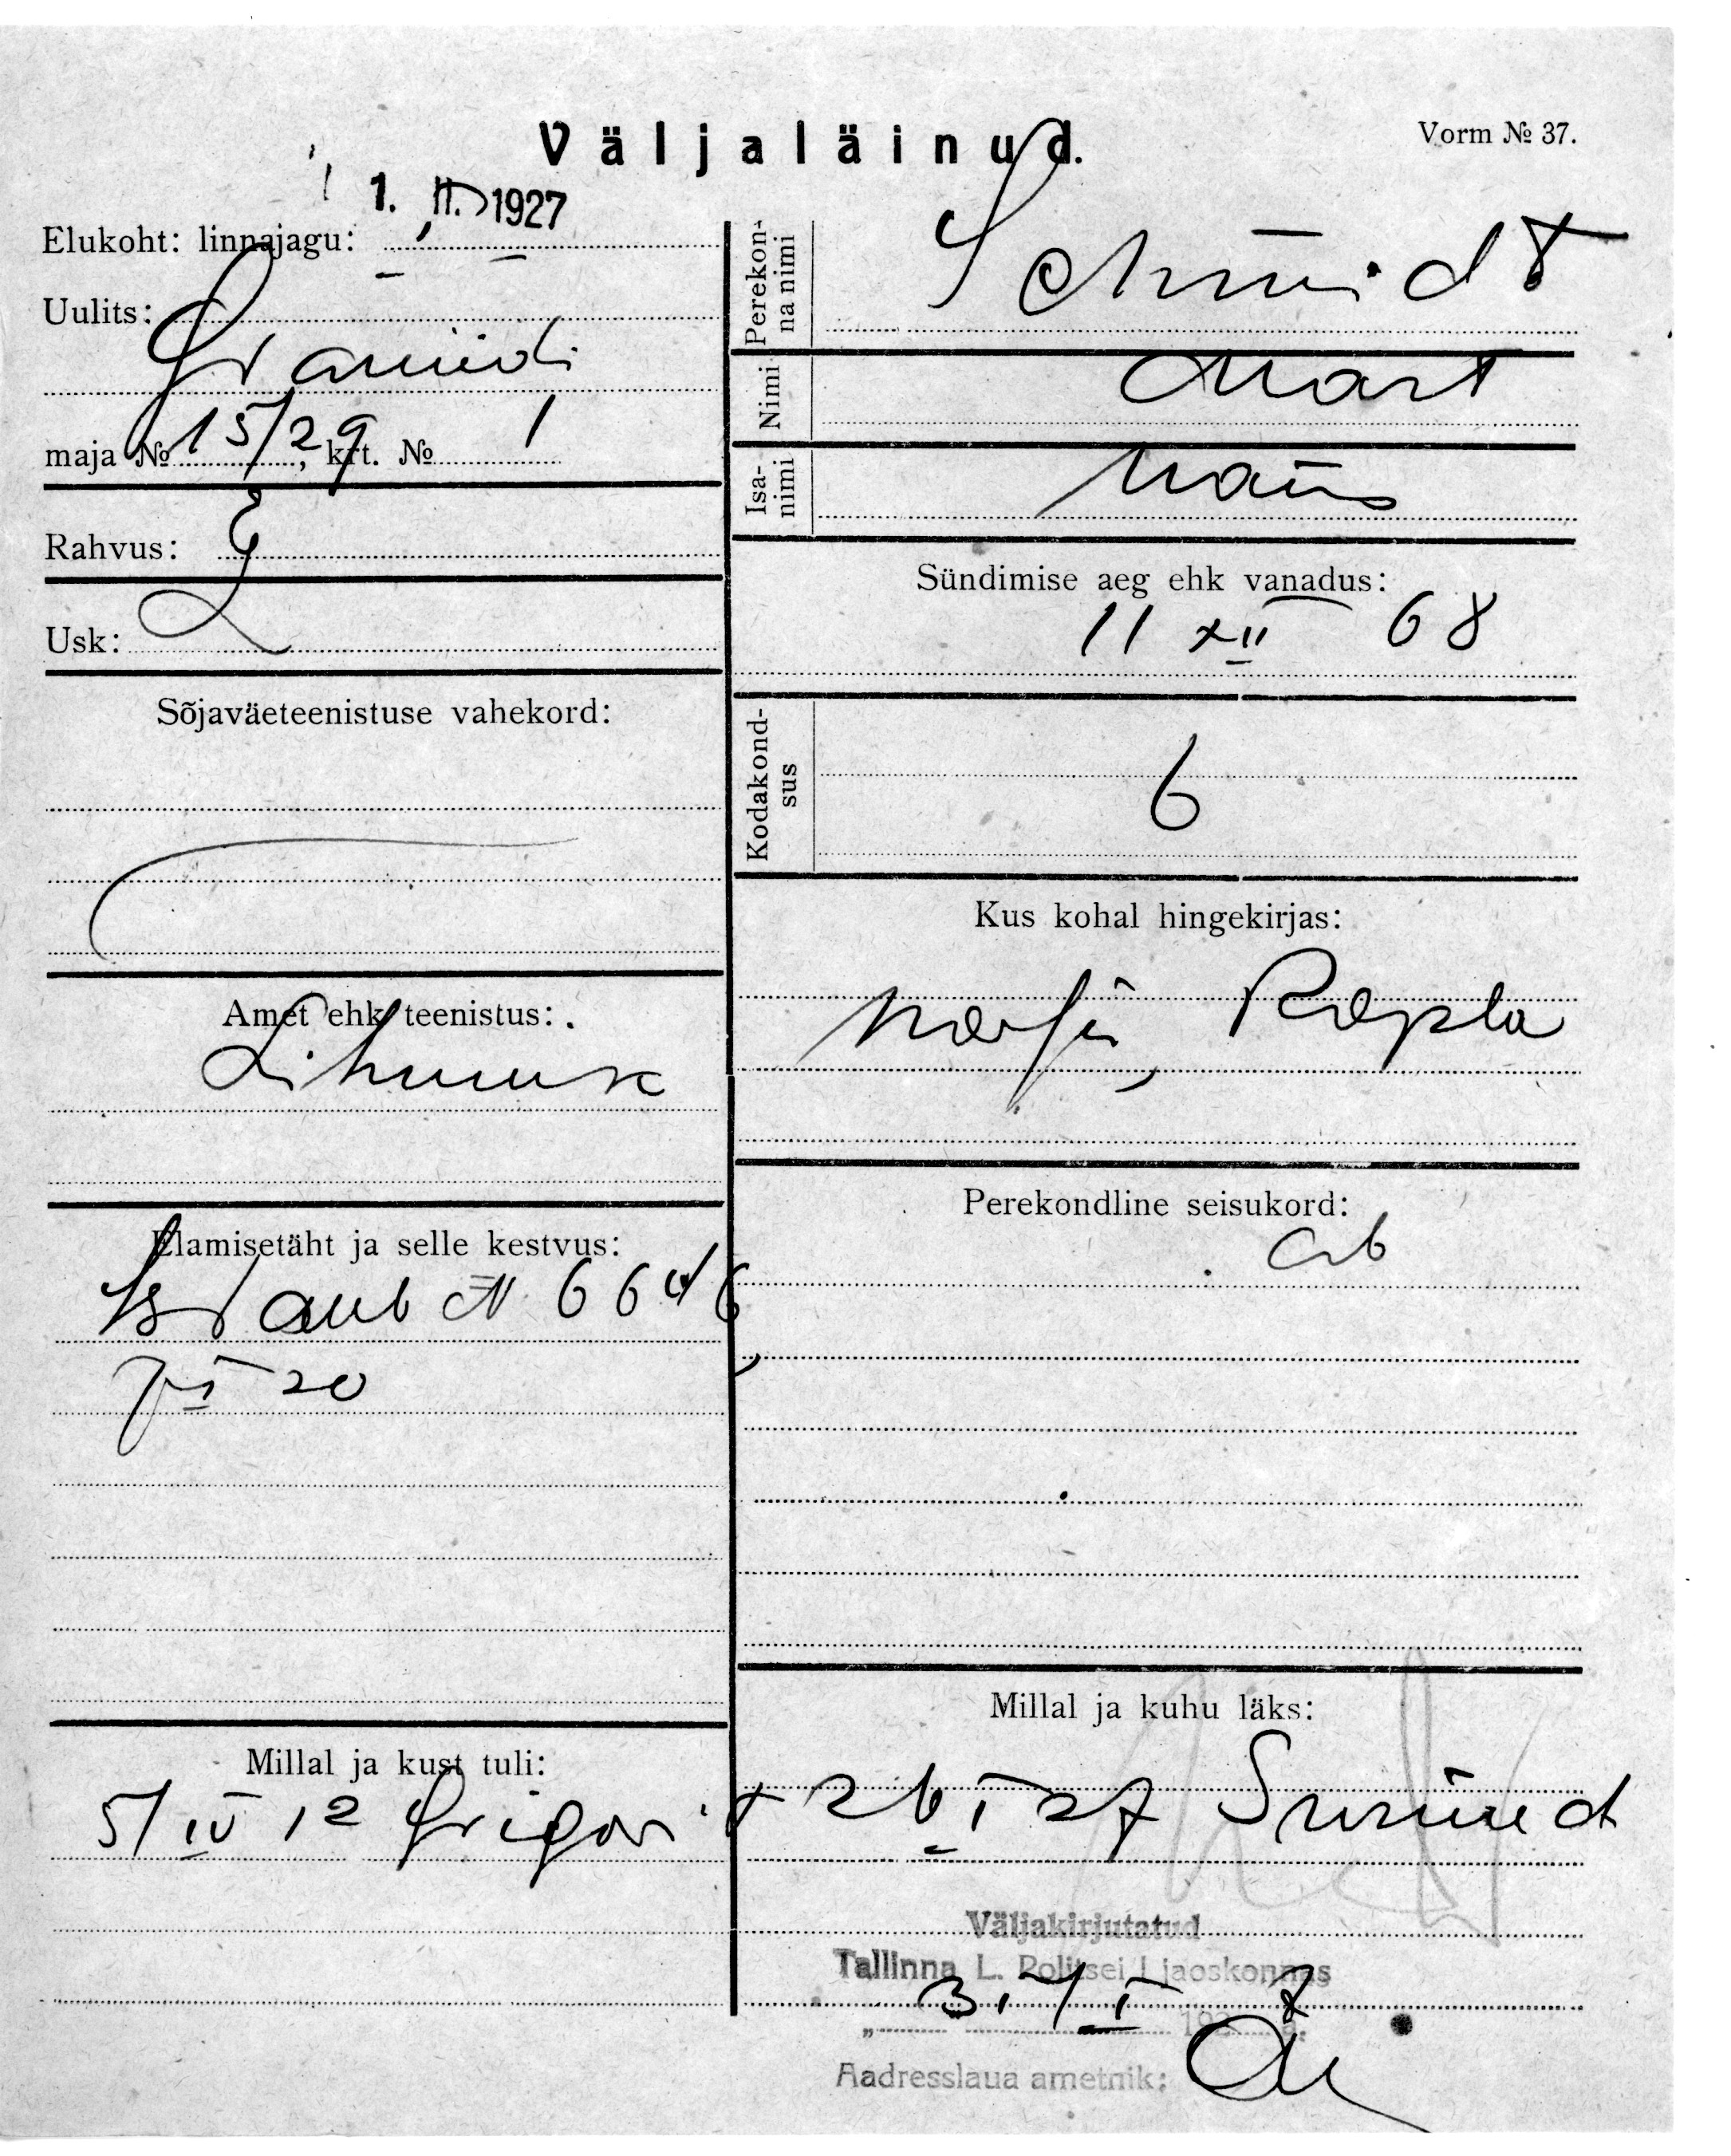 Väljaläinud.
Vorm № 37.
1. II. 1927
Elukoht: linnajagu:
Uulits:
Graniidi
maja № 15/29, krt. № 1
Rahvus: E
Usk: L
Sõjaväeteenistuse vahekord:
Amet ehk teenistus:
Lihunik
Elamisetäht ja selle kestvus:
N 6646
20
Millal ja kust tuli:
5/IV 12 Grigori
Perekonna nimi
Schmidt
Nimi
Mart
Isanimi
Hans
Sündimise aeg ehk vanadus:
11 XII 68
Kodakondsus
6
Kus kohal hingekirjas:
Rapla
Perekondline seisukord:
ab
Millal ja kuhu läks:
26 I 27 Surnud
Väljakirjutatud
Tallinna L. Politsei I jaoskonnas
31/I 1927 a.
Aadresslaua ametnik: